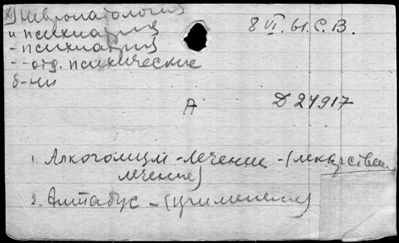 Невропатология
и психиатрия
- психиатрия
- - отд. психические
б-ни
8 VI. 61. С. В.
А
Д 24917
1. Алкоголизм - лечение - (лекарствен
лечение)
2. Антабус - (применения)